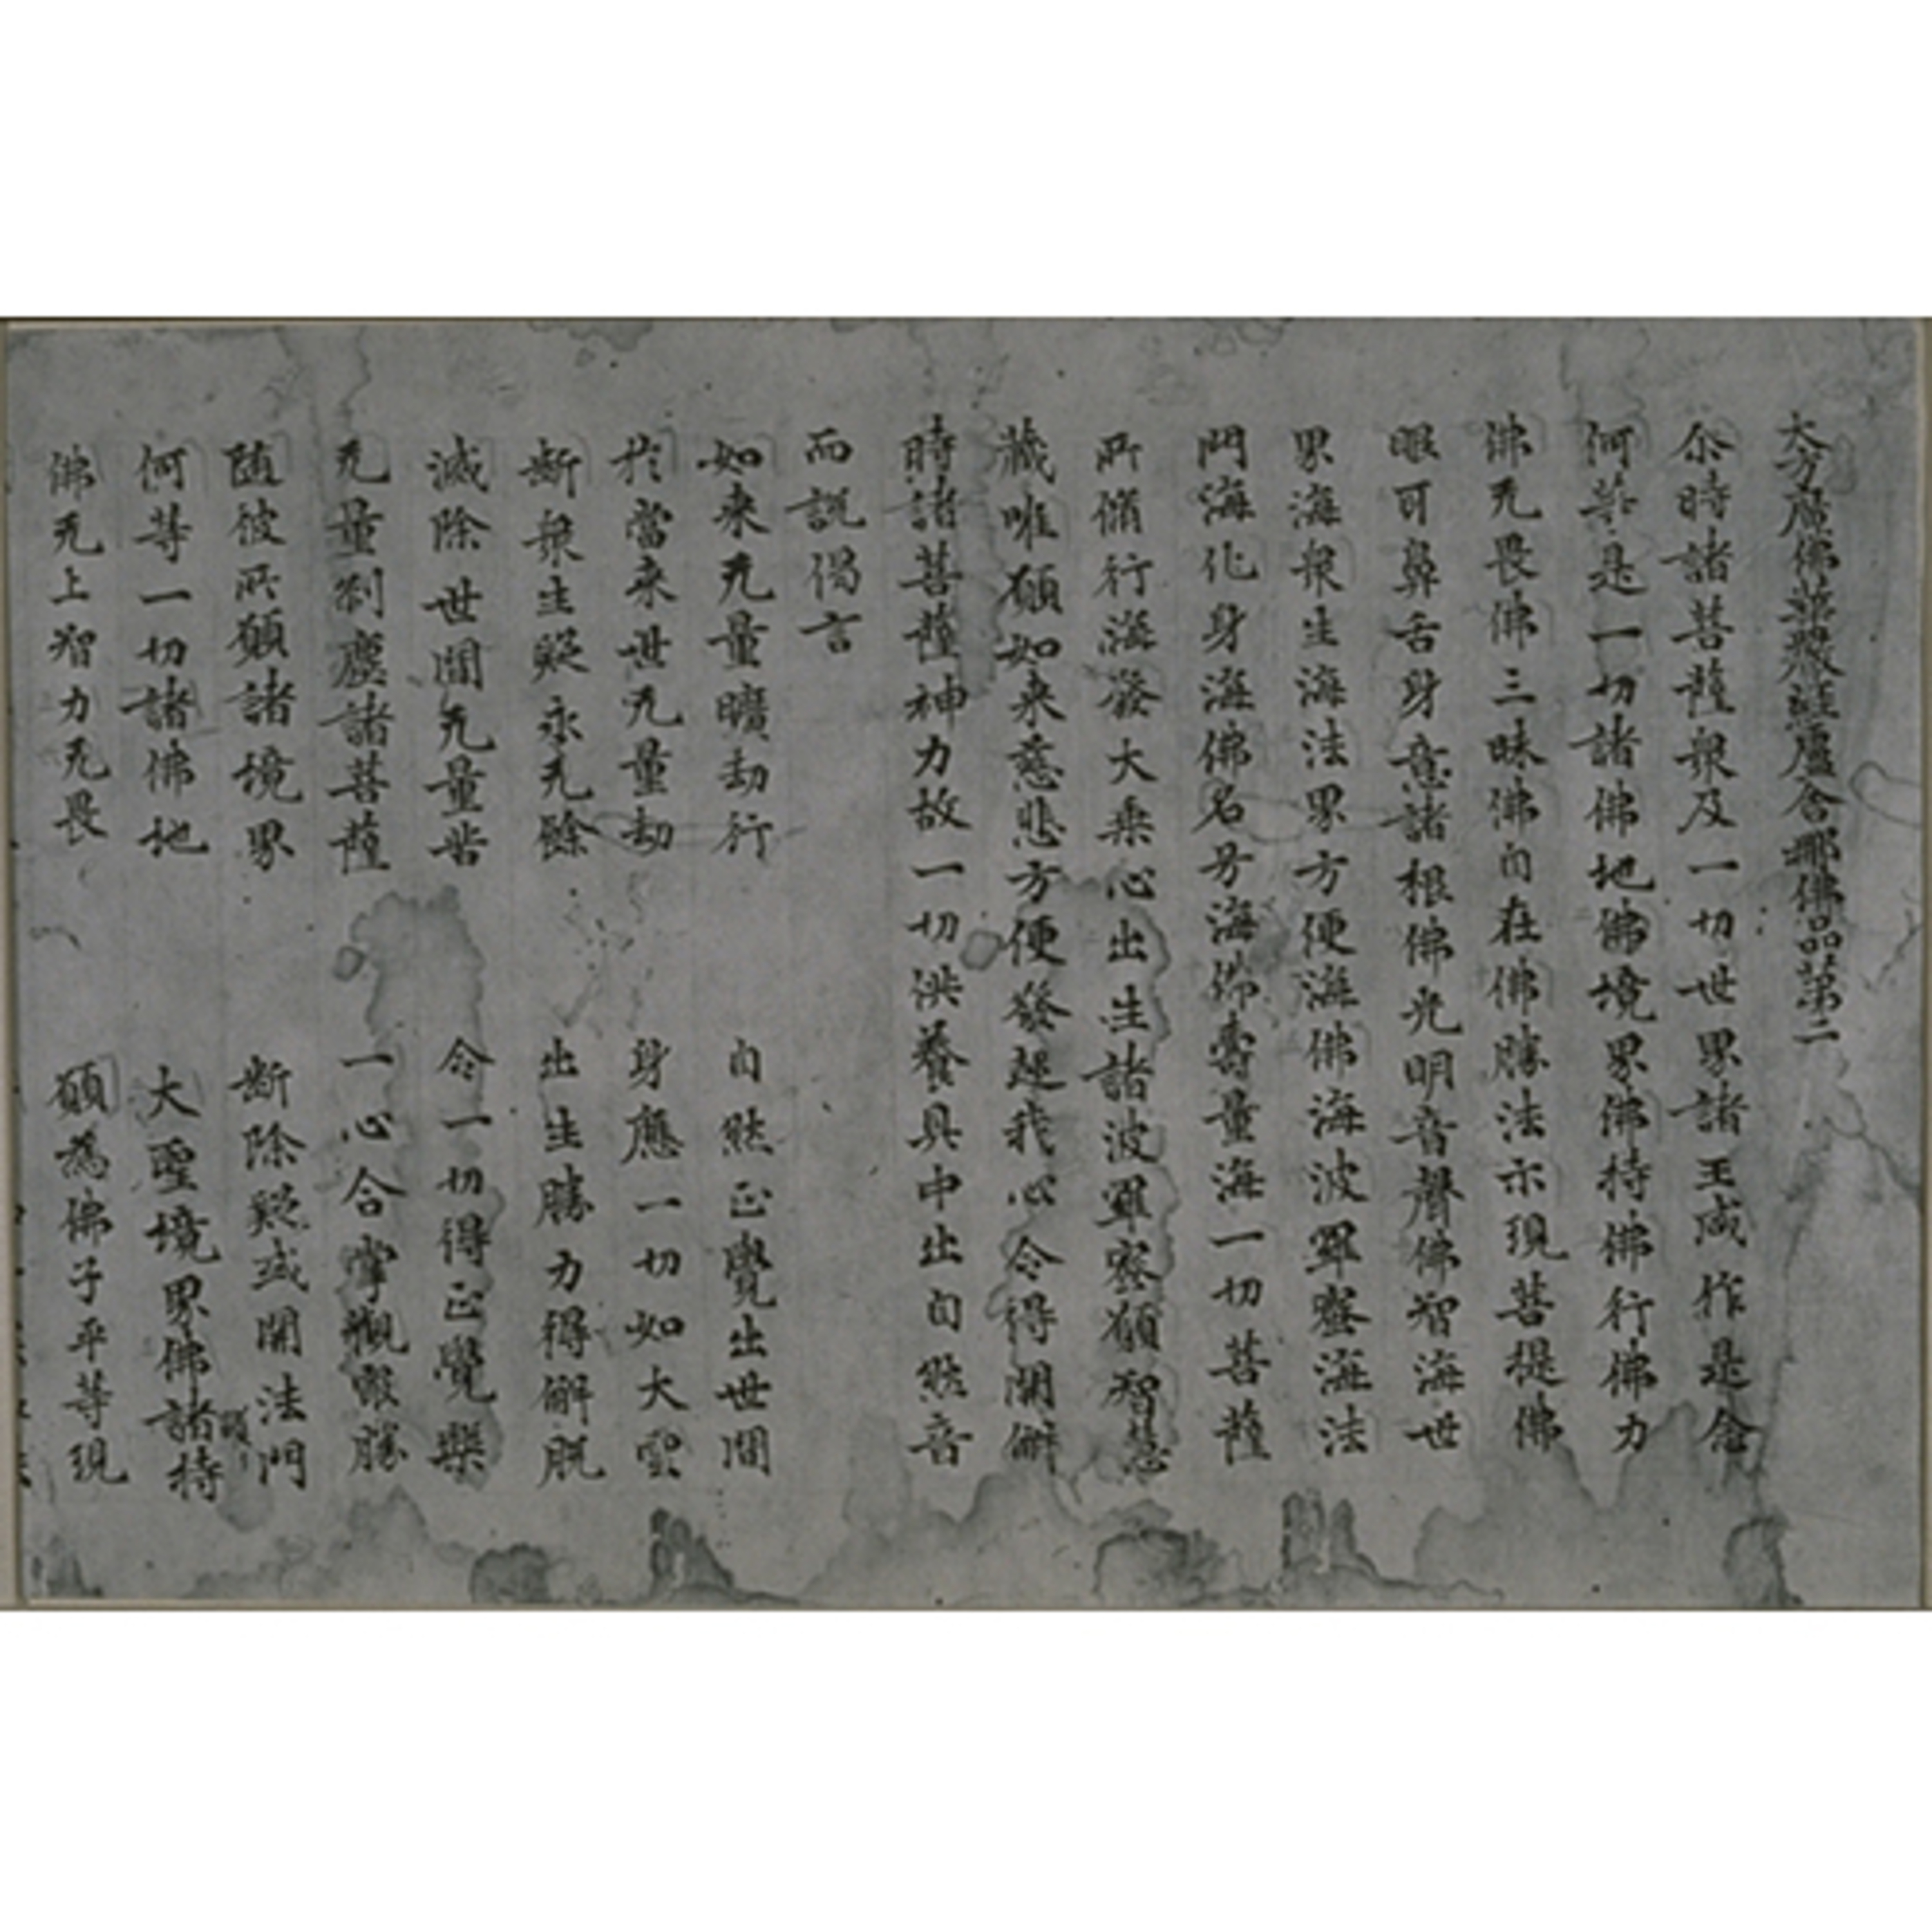 大方廣佛華嚴經盧舍那佛品第二
尒時諸菩薩衆及一切世界諸王咸作是念
何等是一切諸佛地佛境界佛持佛行佛力
佛无畏佛三昧佛自在佛勝法示現菩提佛
眼耳鼻舌身意諸根佛光明音聲佛智海世
界海衆生海法界方便海佛海波羅蜜海法
門海化身海佛名号海佛壽量海一切菩薩
所脩行海發大乘心出生諸波羅蜜願智慧
藏唯願如来慈悲方便發起我心令得開解
時諸菩薩神力故一切供養具中出自然音
而說偈言
如来无量曠劫行 自然正覺出世間
於當来世无量劫 身應一切如大雲
斷衆生疑永无餘 出生勝力得解脫
滅除世間无量皆 令一切得正覺樂
无量刹塵諸菩薩 一心合掌觀最勝
隨彼所願諸境界 斷除疑或開法門
何等一切諸佛地 大聖境界佛諸持
佛无上智力无畏 願為佛子平等現